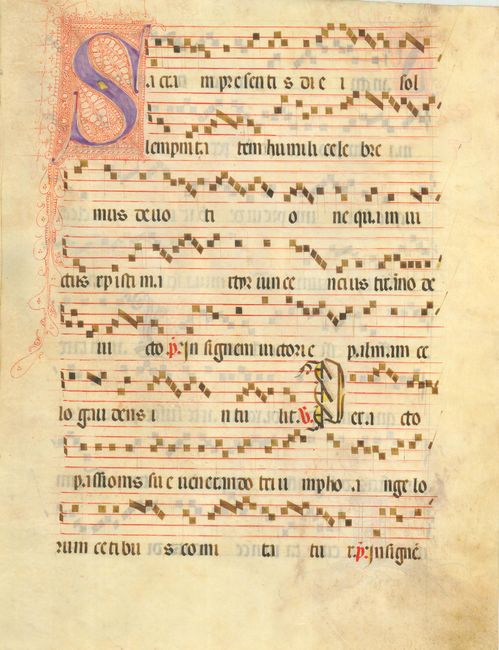 Sacra inpresenti s die i sol
lempnita tem humili celebre
mus deuo ti o ne qua in ui
ctus xpisti ma rtyr uincencius titano de
ui cto p. In signem uictorie palmam ce
lo gaudens i n tu lit. v. Pera cto
passionis sue uenerando triu mpho a ngelo
rum cetibu s comi ta tu r. p. In signe.